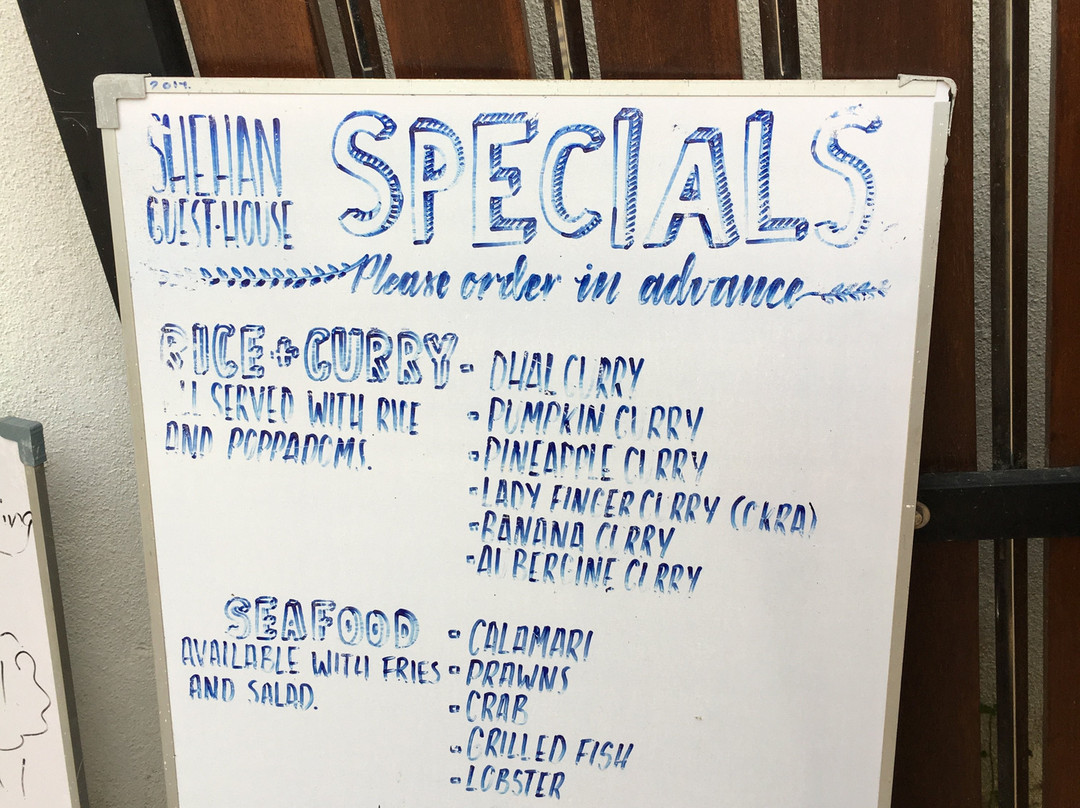 2017.
SHEHAN
GUEST-HOUSE
SPECIALS
Please order in advance
RICE + CURRY
ALL SERVED WITH RICE
AND POPPADOMS.
- DHAL CURRY
- PUMPKIN CURRY
- PINEAPPLE CURRY
- LADY FINGER CURRY (OKRA)
- BANANA CURRY
- ALBERGINE CURRY
SEAFOOD
AVAILABLE WITH FRIES
AND SALAD.
- CALAMARI
- PRAWNS
- CRAB
- GRILLED FISH
- LOBSTER
ing